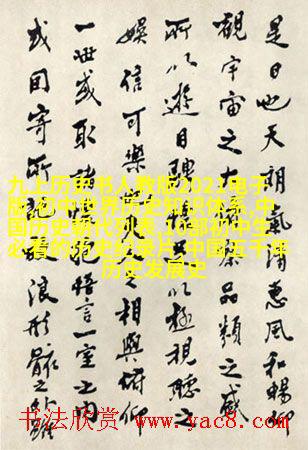 是日也天朗氣清惠風和暢仰
觀宇宙之大俯察品類之盛
所以遊目騁懷足以極視聽之
娛信可樂也夫人之相與俯仰
一世或取諸懷抱悟言一室之內
或因寄所託放浪形骸之外雖
九上历史书人教版2021电子
版,初中世界历史知识体系,中
国历史朝代列表,10部初中生
必看的历史纪录片,中国五千年
历史发展史
书法欣赏 www.yac8.com